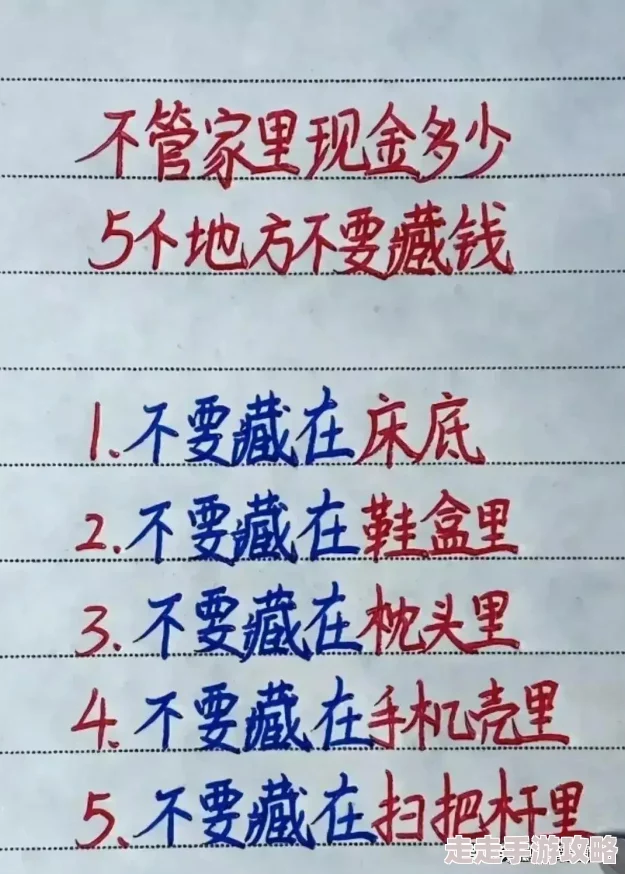 不管家里现金多少
5个地方不要藏钱
1.不要藏在床底
2.不要藏在鞋盒里
3.不要藏在枕头里
4.不要藏在手机壳里
5.不要藏在扫把杆里
走走手游攻略